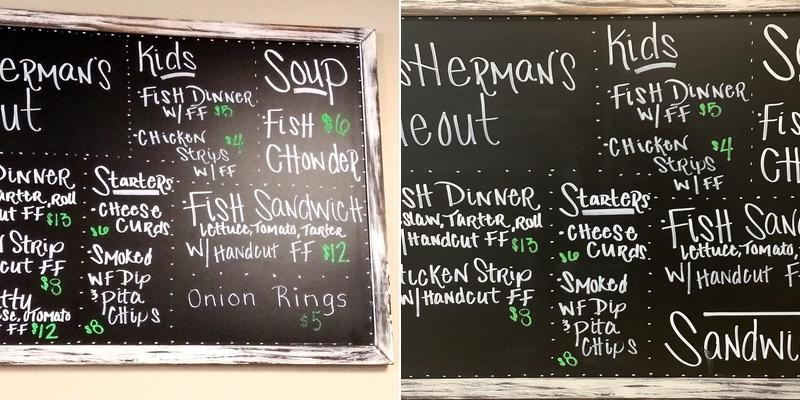 ERMAN'S
ut
Kids
FISH DINNER
W/FF $5
CHICKEN $4
STRIPS
W/FF
Soup
FISH $6
CHOWDER
DINNER
arter, Roll
ut FF $13
Strip
cut FF
$8
tty
se, Tomato
FF $12
STARTERS
CHEESE
$6 CURDS
Smoked
WF Dip
3 Pita
CHIPS
$8
FISH SANDWICH
Lettuce, Tomato, Tarter
W/Handcut FF $12
Onion Rings
$5
SHERMAN'S
eout
Kids
FISH DINNER
W/FF $5
CHICKEN $4
STRIPS
W/FF
So
FIS
CH
SH DINNER
slaw, Tarter, Roll
/Handcut FF $13
ICKEN Strip
W/Handcut FF
$8
STARTERS
CHEESE
$6 CURDS
Smoked
WF Dip
3 Pita
CHIPS
$8
FISH SAN
Lettuce, Tomato,
W/Handcut F
Sandwi